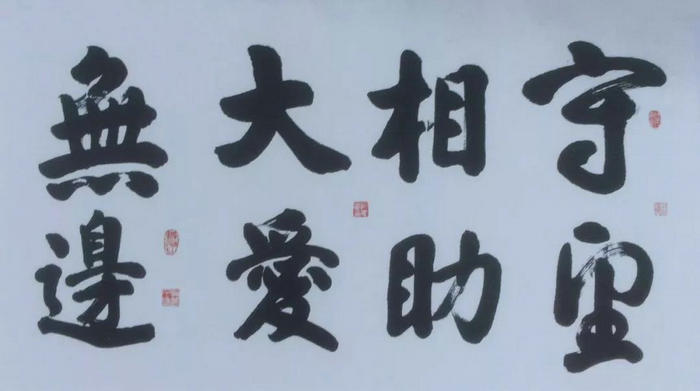 守望
相助
大愛
無邊